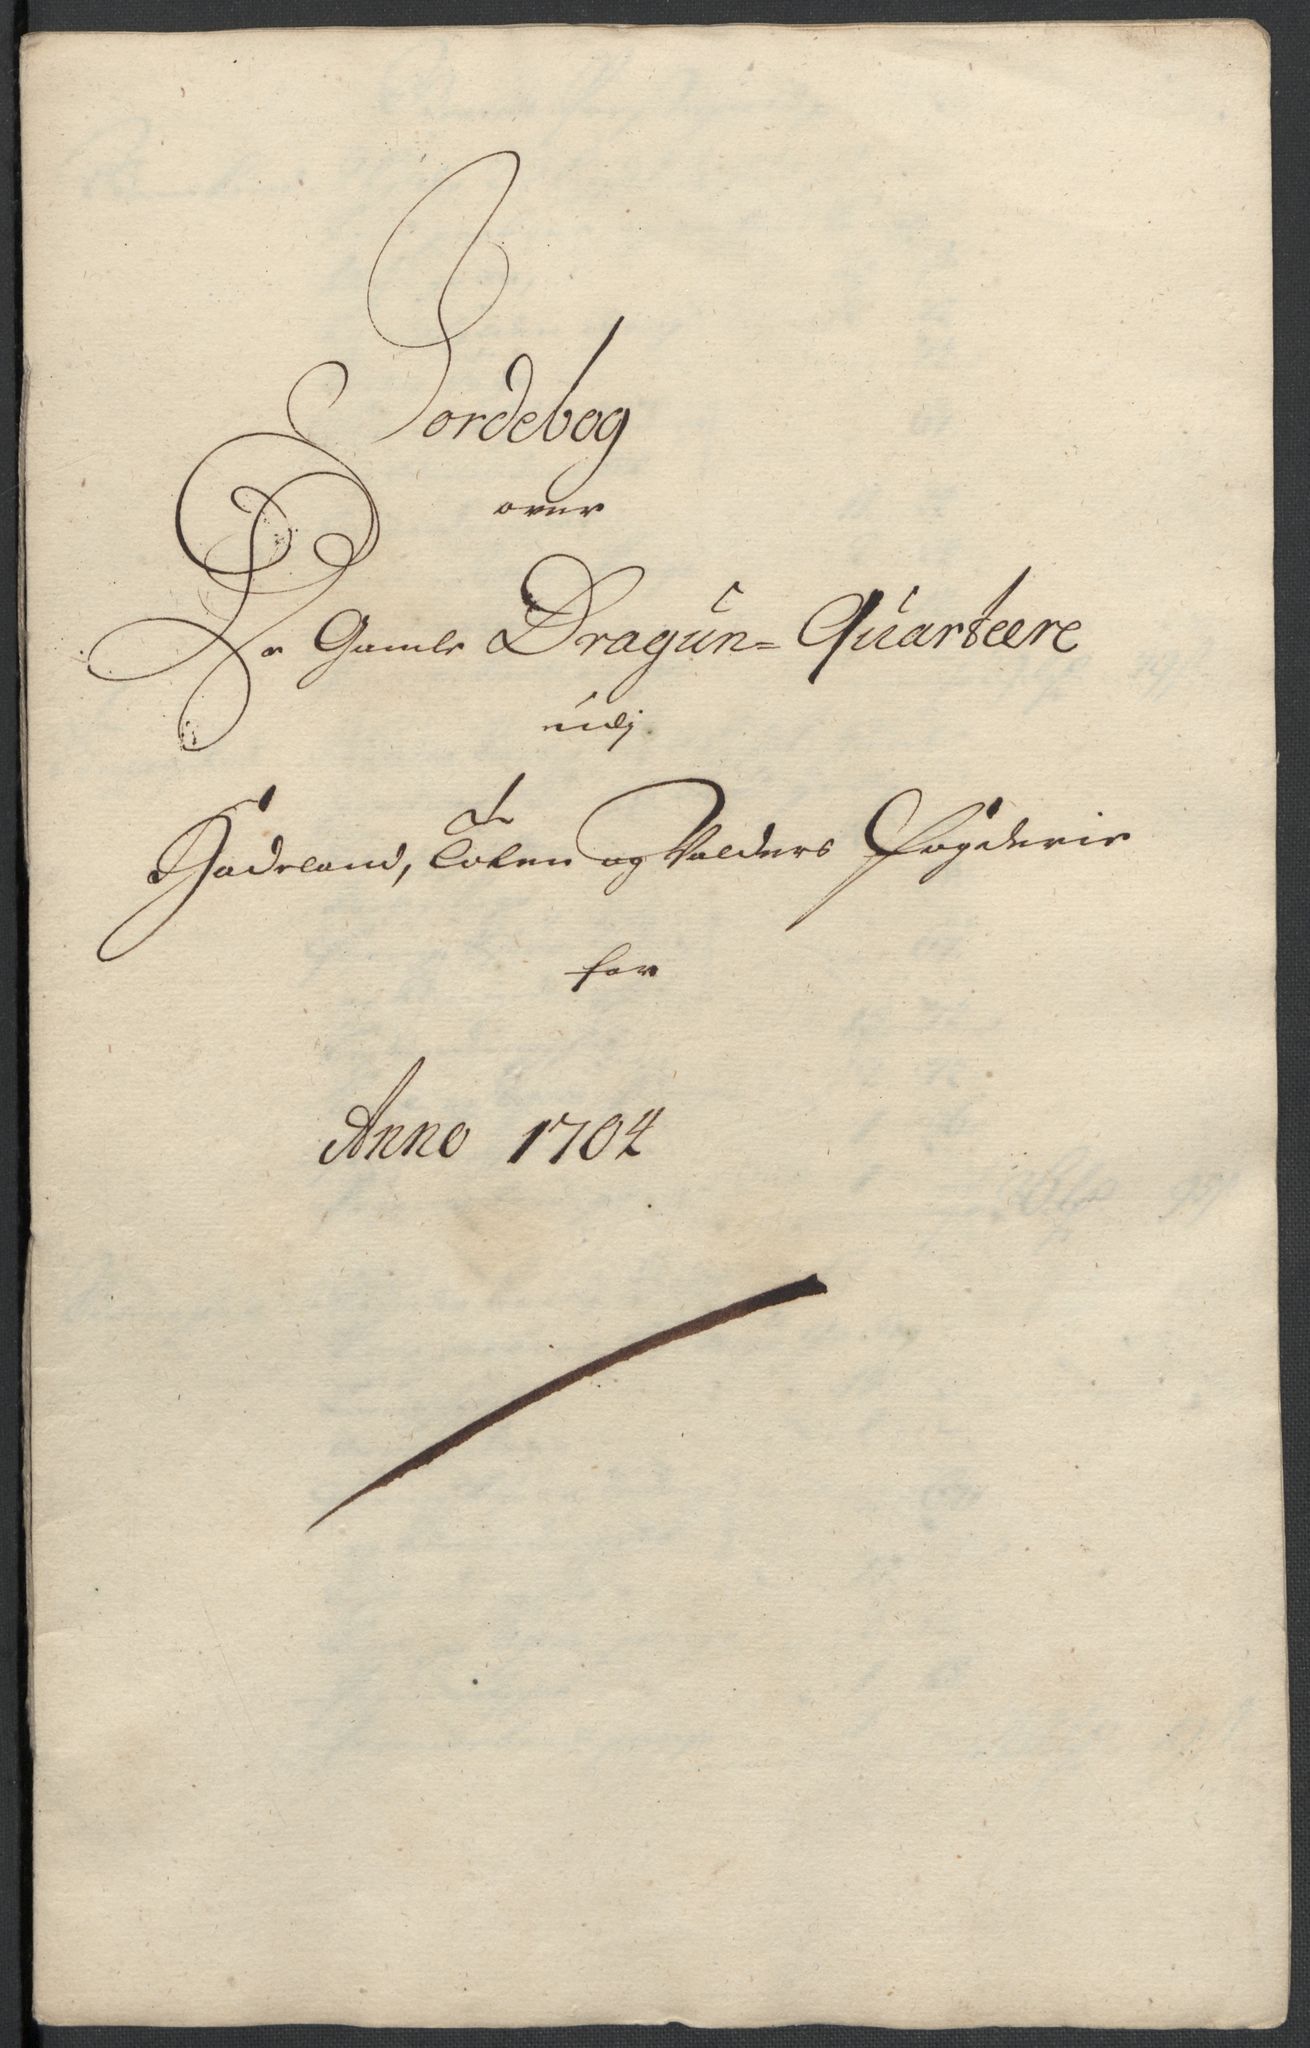 Jordebog
over
De Gamle Dragün- Qüarteere
udj
Hadeland, Toten og Valders Fogderie
for
Anno 1704